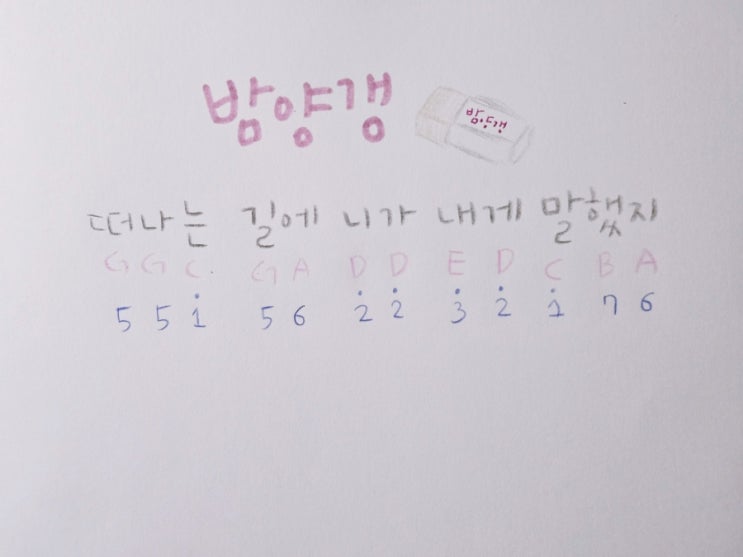 밤양갱
밤양갱
떠나는 길에 니가 내게 말했지
G G C G A D D E D C B A
5 5 1̇ 5 6 2̇ 2̇ 3̇ 2̇ 1̇ 7 6